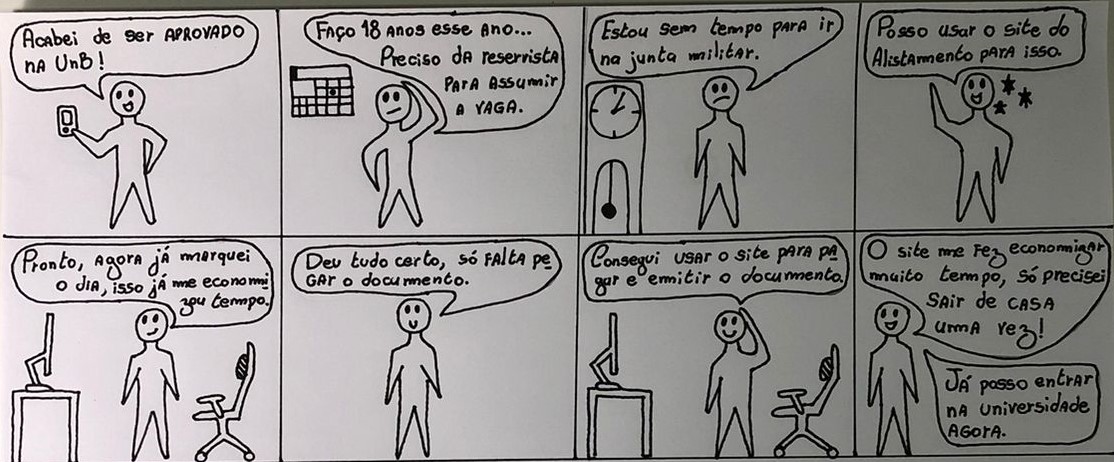 Acabei de ser APROVADO
na UnB!
Faço 18 anos esse ano...
Preciso da reservista
para assumir
a vaga.
Estou sem tempo para ir
na junta militar.
Posso usar o site do
Alistamento para isso.
Pronto, agora já marquei
o dia, isso já me economi
zou tempo.
Deu tudo certo, só falta pe
gar o documento.
Consegui usar o site para pa
gar e emitir o documento.
O site me fez economizar
muito tempo, só precisei
sair de casa
uma vez!
Já posso entrar
na universidade
agora.